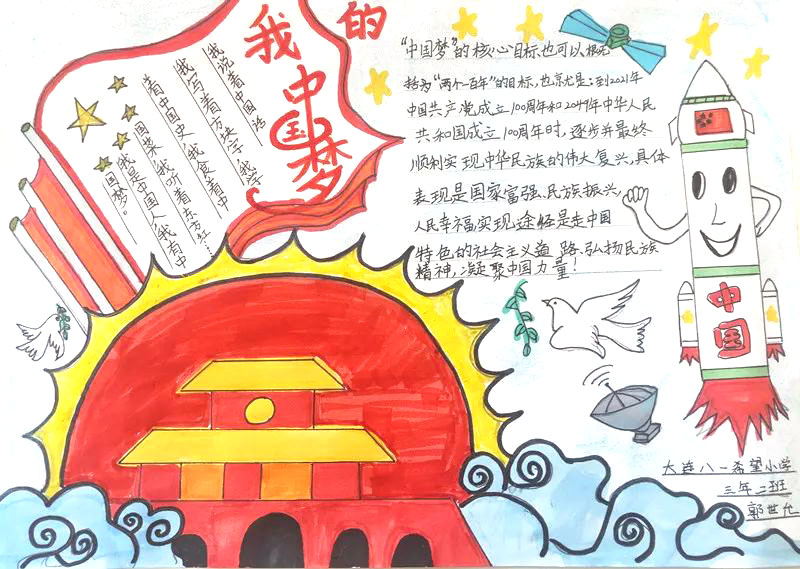 我的
中国梦
我说着中国话 我学
我写着方块字 我食着中
着中国史 我听着东方红
国菜 我是中国人 我有中
国梦。
"中国梦"的核心目标也可以概
括为"两个一百年"的目标,也就是:到2021年
中国共产党成立100周年和2049年中华人民
共和国成立100周年时,逐步并最终
顺利实现中华民族的伟大复兴,具体
表现是国家富强、民族振兴,
人民幸福实现途径是走中国
特色的社会主义道路、弘扬民族
精神,凝聚中国力量!
中国
大连八一希望小学
三年二班
郭世允